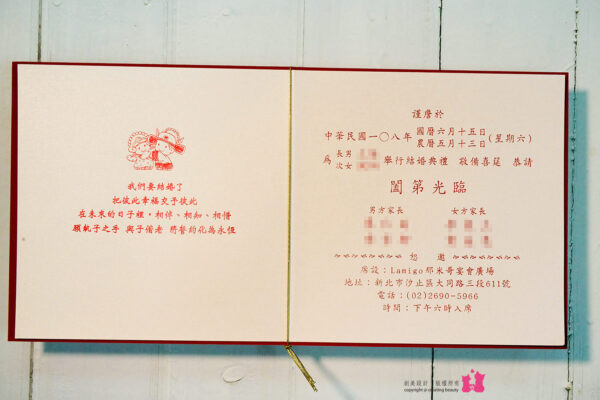 我們要結婚了
把彼此幸福交予彼此
在未來的日子裡,相伴、相知、相惜
願執子之手 與子偕老 將誓約化為永恆
謹詹於
中華民國一〇八年 國曆六月十五日 (星期六)
農曆五月十三日
為 長男
次女
舉行結婚典禮 敬備喜筵 恭請
闔第光臨
男方家長 女方家長
恕邀
席設:Lamigo那米哥宴會廣場
地址:新北市汐止區大同路三段611號
電話:(02)2690-5966
時間:下午六時入席
創美設計 版權所有
copyright © creating beauty